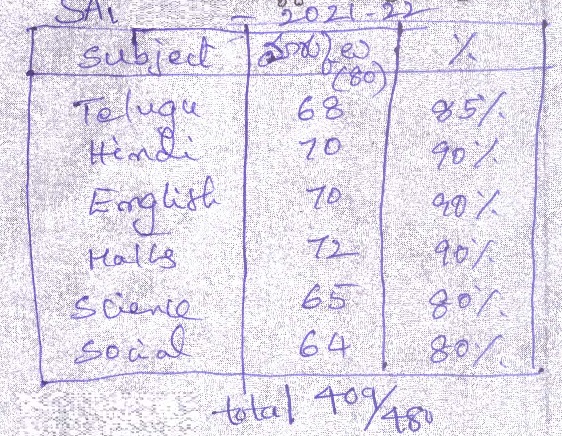 SAI - 2021-22
Subject మార్కులు (80) %
Telugu 68 85%
Hindi 70 90%
English 70 90%
Maths 72 90%
Science 65 80%
Social 64 80%
total 409/480